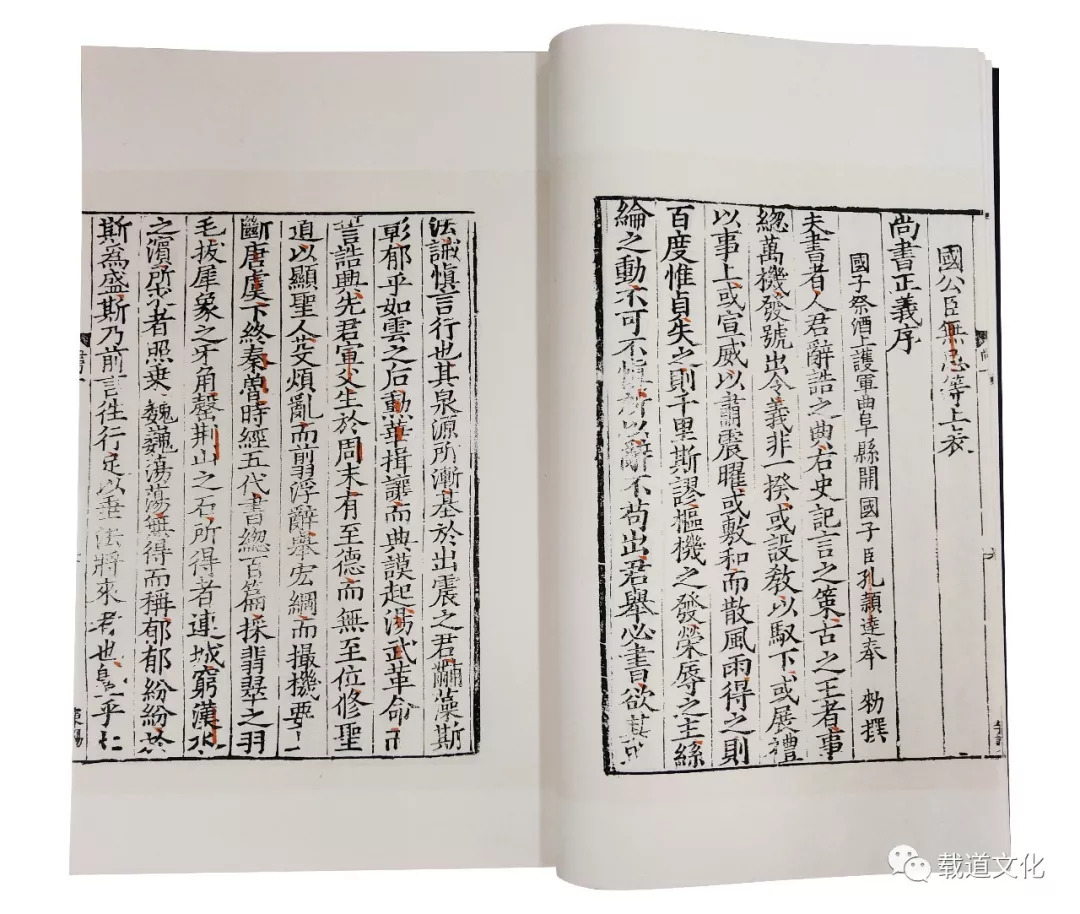 國公臣無忌等上表
尚書正義序
國子祭酒上護軍曲阜縣開國子臣孔穎達奉　勑撰
夫書者人君辭誥之典右史記言之策古之王者事
緫萬機發號出令義非一揆或設敎以馭下或展禮
以事上或宣威以肅震曜或敷和而散風雨得之則
百度惟貞失之則千里斯謬樞機之發榮辱之主絲
綸之動不可不愼所以辭不苟出君舉必書欲其
法誡愼言行也其泉源所漸基於出震之君黼藻斯
彰郁乎如雲之后勳華揖讓而典謨起湯武革命而
誓誥興先君宣父生於周末有至德而無至位修聖
道以顯聖人芟煩亂而翦浮辭舉宏綱而撮機要上
斷唐虞下終秦魯時經五代書緫百篇採翡翠之羽
毛拔犀象之牙角罄荆山之石所得者連城窮漢水
之濱所求者照乗巍巍蕩蕩無得而稱郁郁紛紛於
斯爲盛斯乃前言徃行足以垂法將來者也曁乎七
载道文化